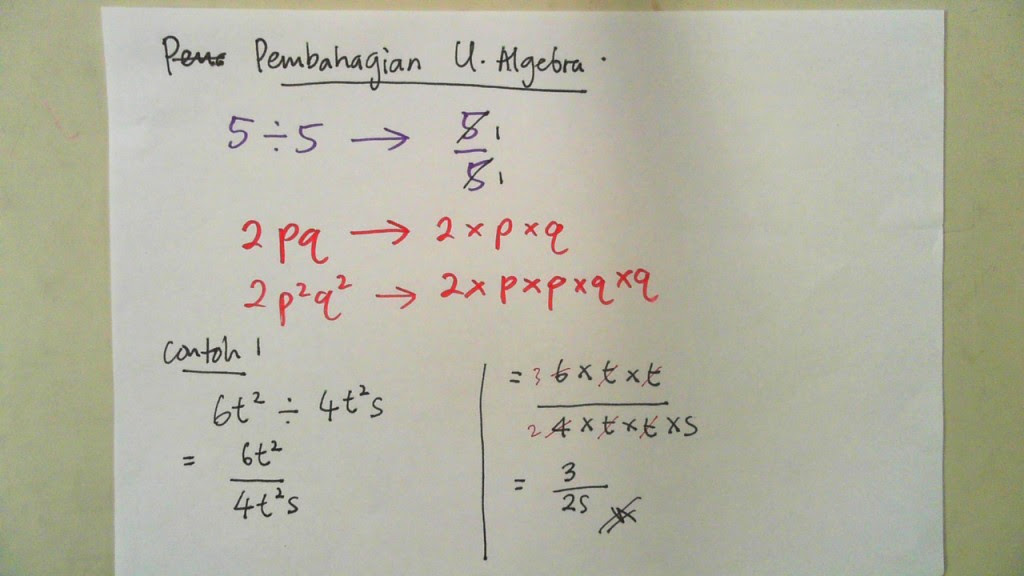 Pen Pembahagian U. Algebra.
5 ÷ 5 → 5 1
5 1
2pq → 2 × p × q
2p²q² → 2 × p × p × q × q
Contoh 1
6t² ÷ 4t²s
= 6t²
4t²s
= 3 6 × t × t
2 4 × t × t × s
= 3
2s